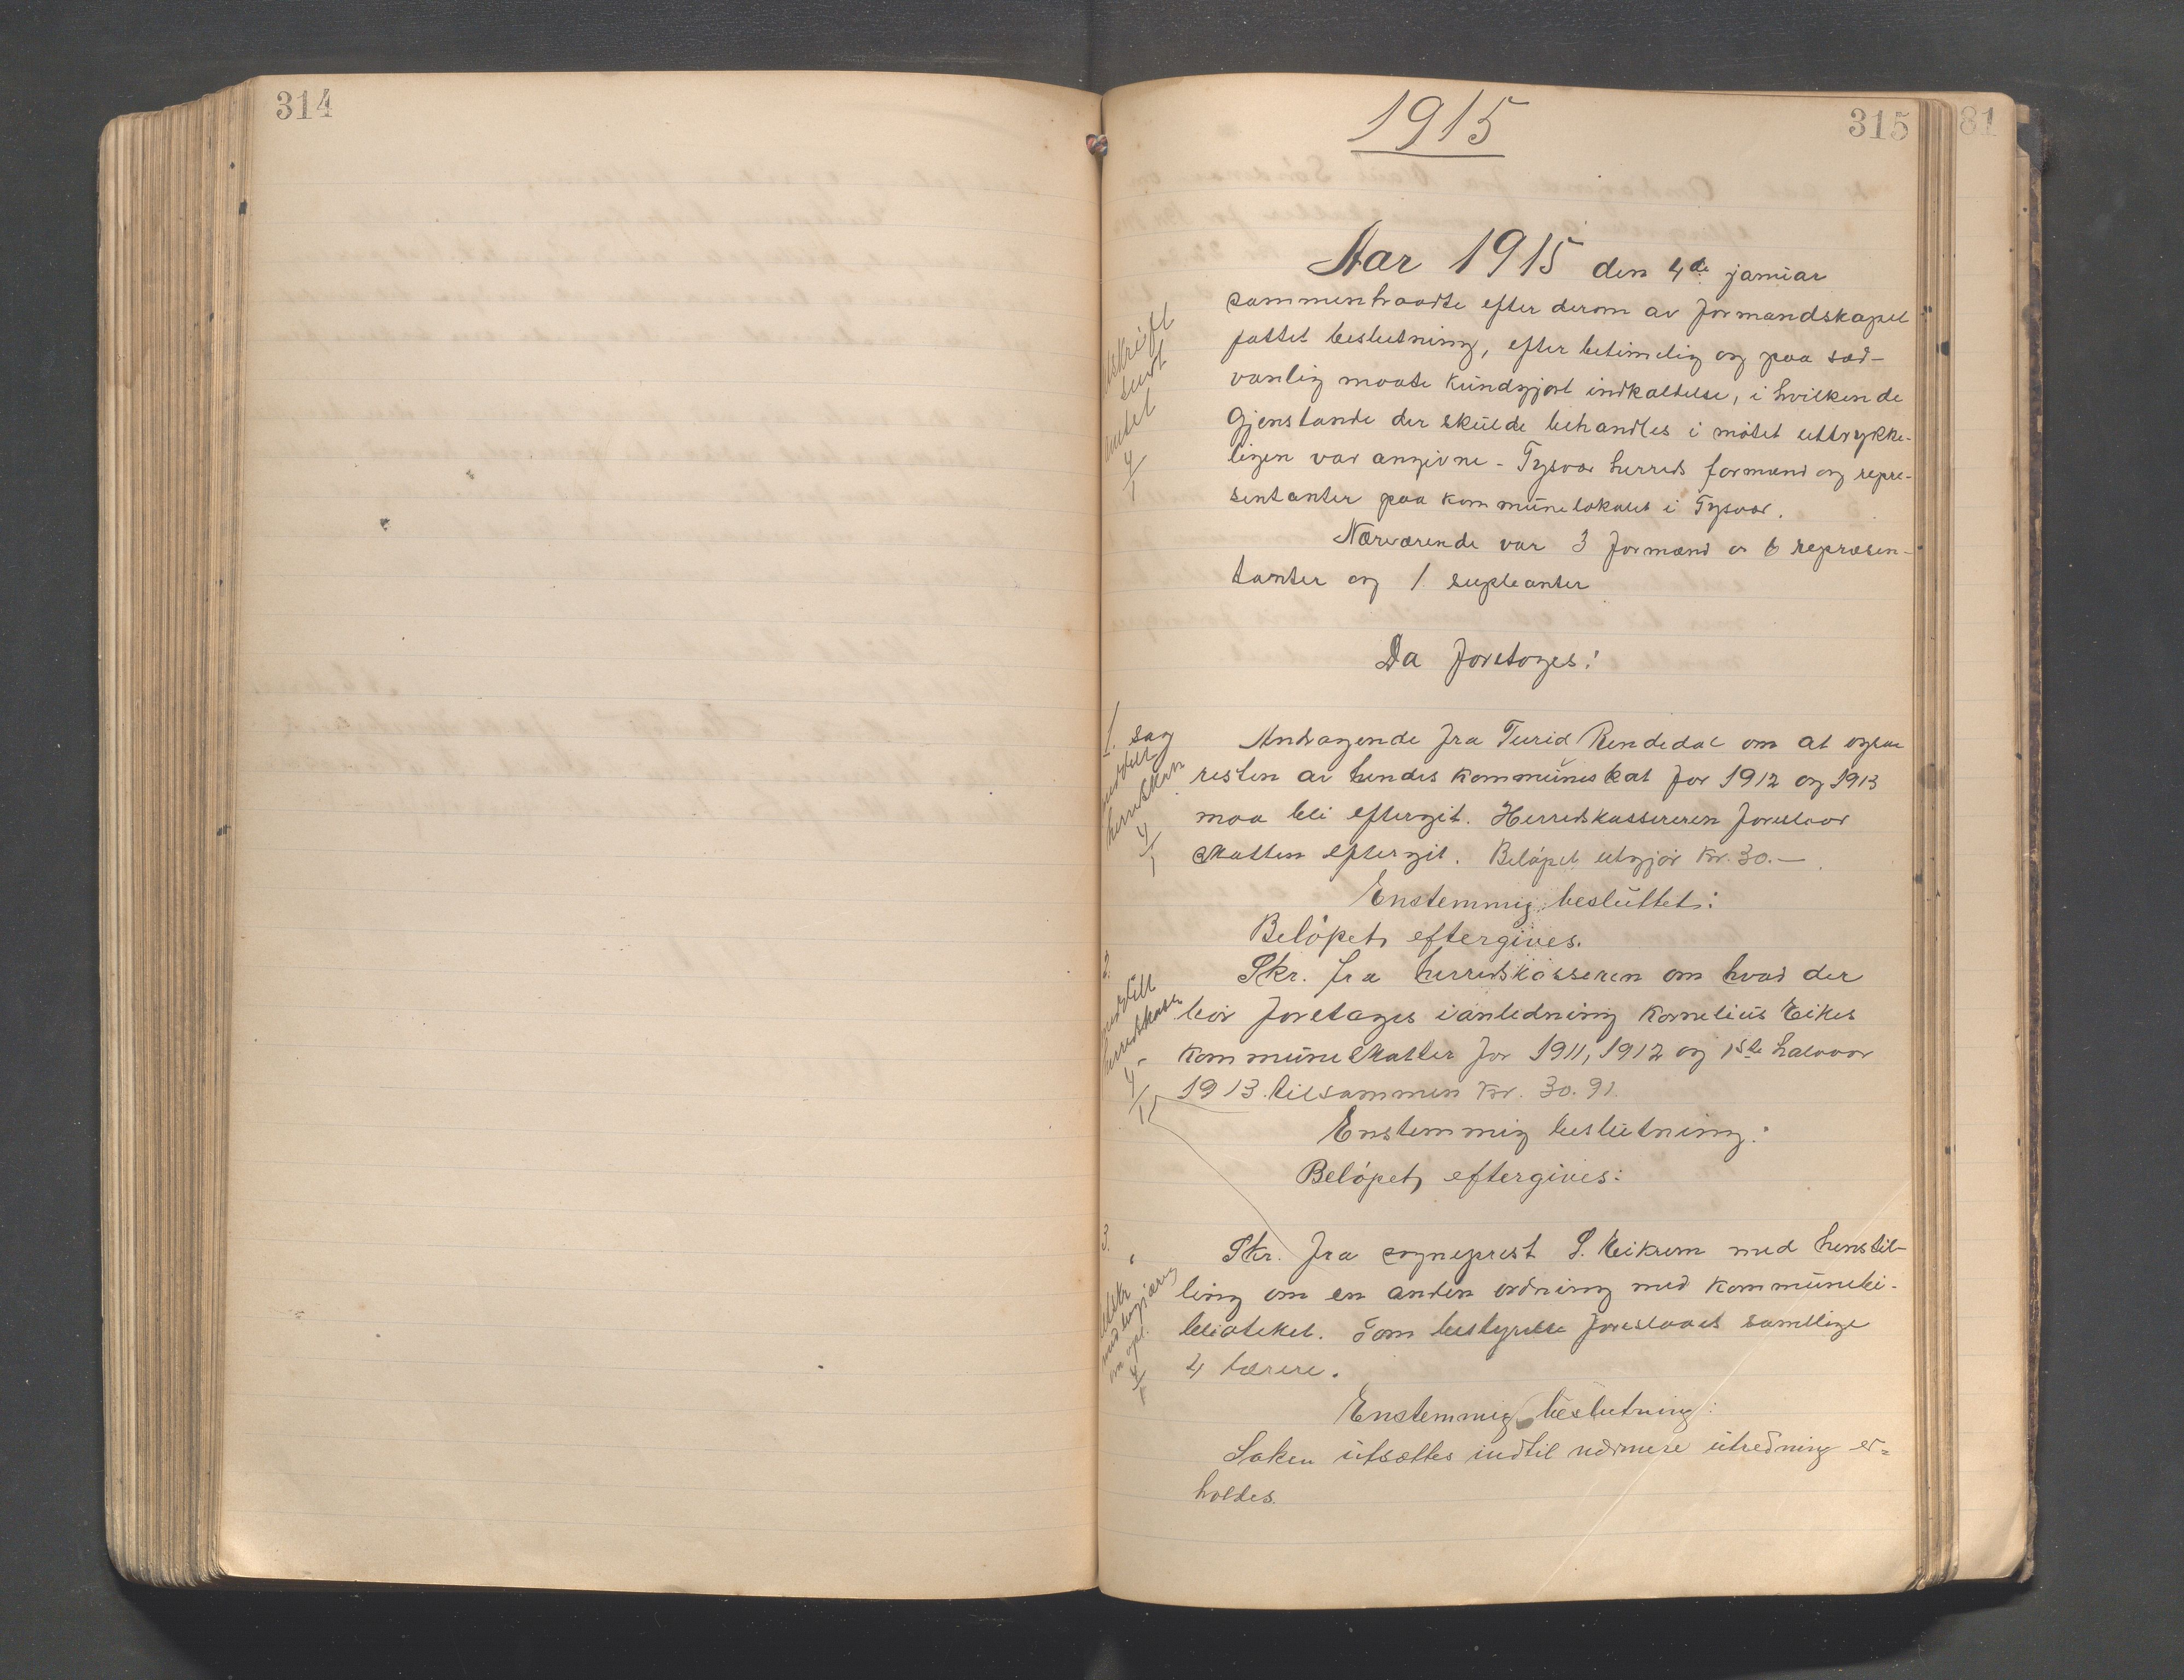 314
1915
315
81
Aar 1915 den 4de januar
sammentraadte efter derom av formandskapet
fattet beslutning, efter betimelig og paa sæd-
vanlig maate kundgjort indkaldelse, i hvilken de
Gjenstande der skulde behandles i mötet uttrykke-
ligen var angivne - Tysvær herreds formænd og repre-
sentanter paa kommunelokalet i Tysvær.
Nærværende var 3 formænd og 6 repræsen-
tanter og 1 supleanter
Da foretoges:
utskrift
sendt
amtet
4/1
1. sag
meddelt
herredskas
4/1
Andragende fra Turid Rendedal om at ogsaa
resten av hendes kommuneskat for 1912 og 1913
maa bli eftergit. Herredskassereren foreslaar
skatten eftergit. Belöpet utgjör kr. 30.—
Enstemmig besluttet:
Belöpet eftergives.
2.
meddelt
herredskas
4/1
Skr. fra herredskasseren om hvad der
bör foretages i anledning Kornelius Eikes
kommuneskatter for 1911, 1912 og 1ste halvaar
1913. tilsammen kr. 30.91
Enstemmig beslutning:
Belöpet eftergives:
3.
utskr
med begjæring
om opl.
4/1
Skr. fra sogneprest S. Eikrem med henstil-
ling om en anden ordning med kommunebi-
blioteket. Som bestyrelse foreslaaes samtlige
4 lærere.
Enstemmig beslutning:
Saken utsættes indtil nærmere utredning er-
holdes.